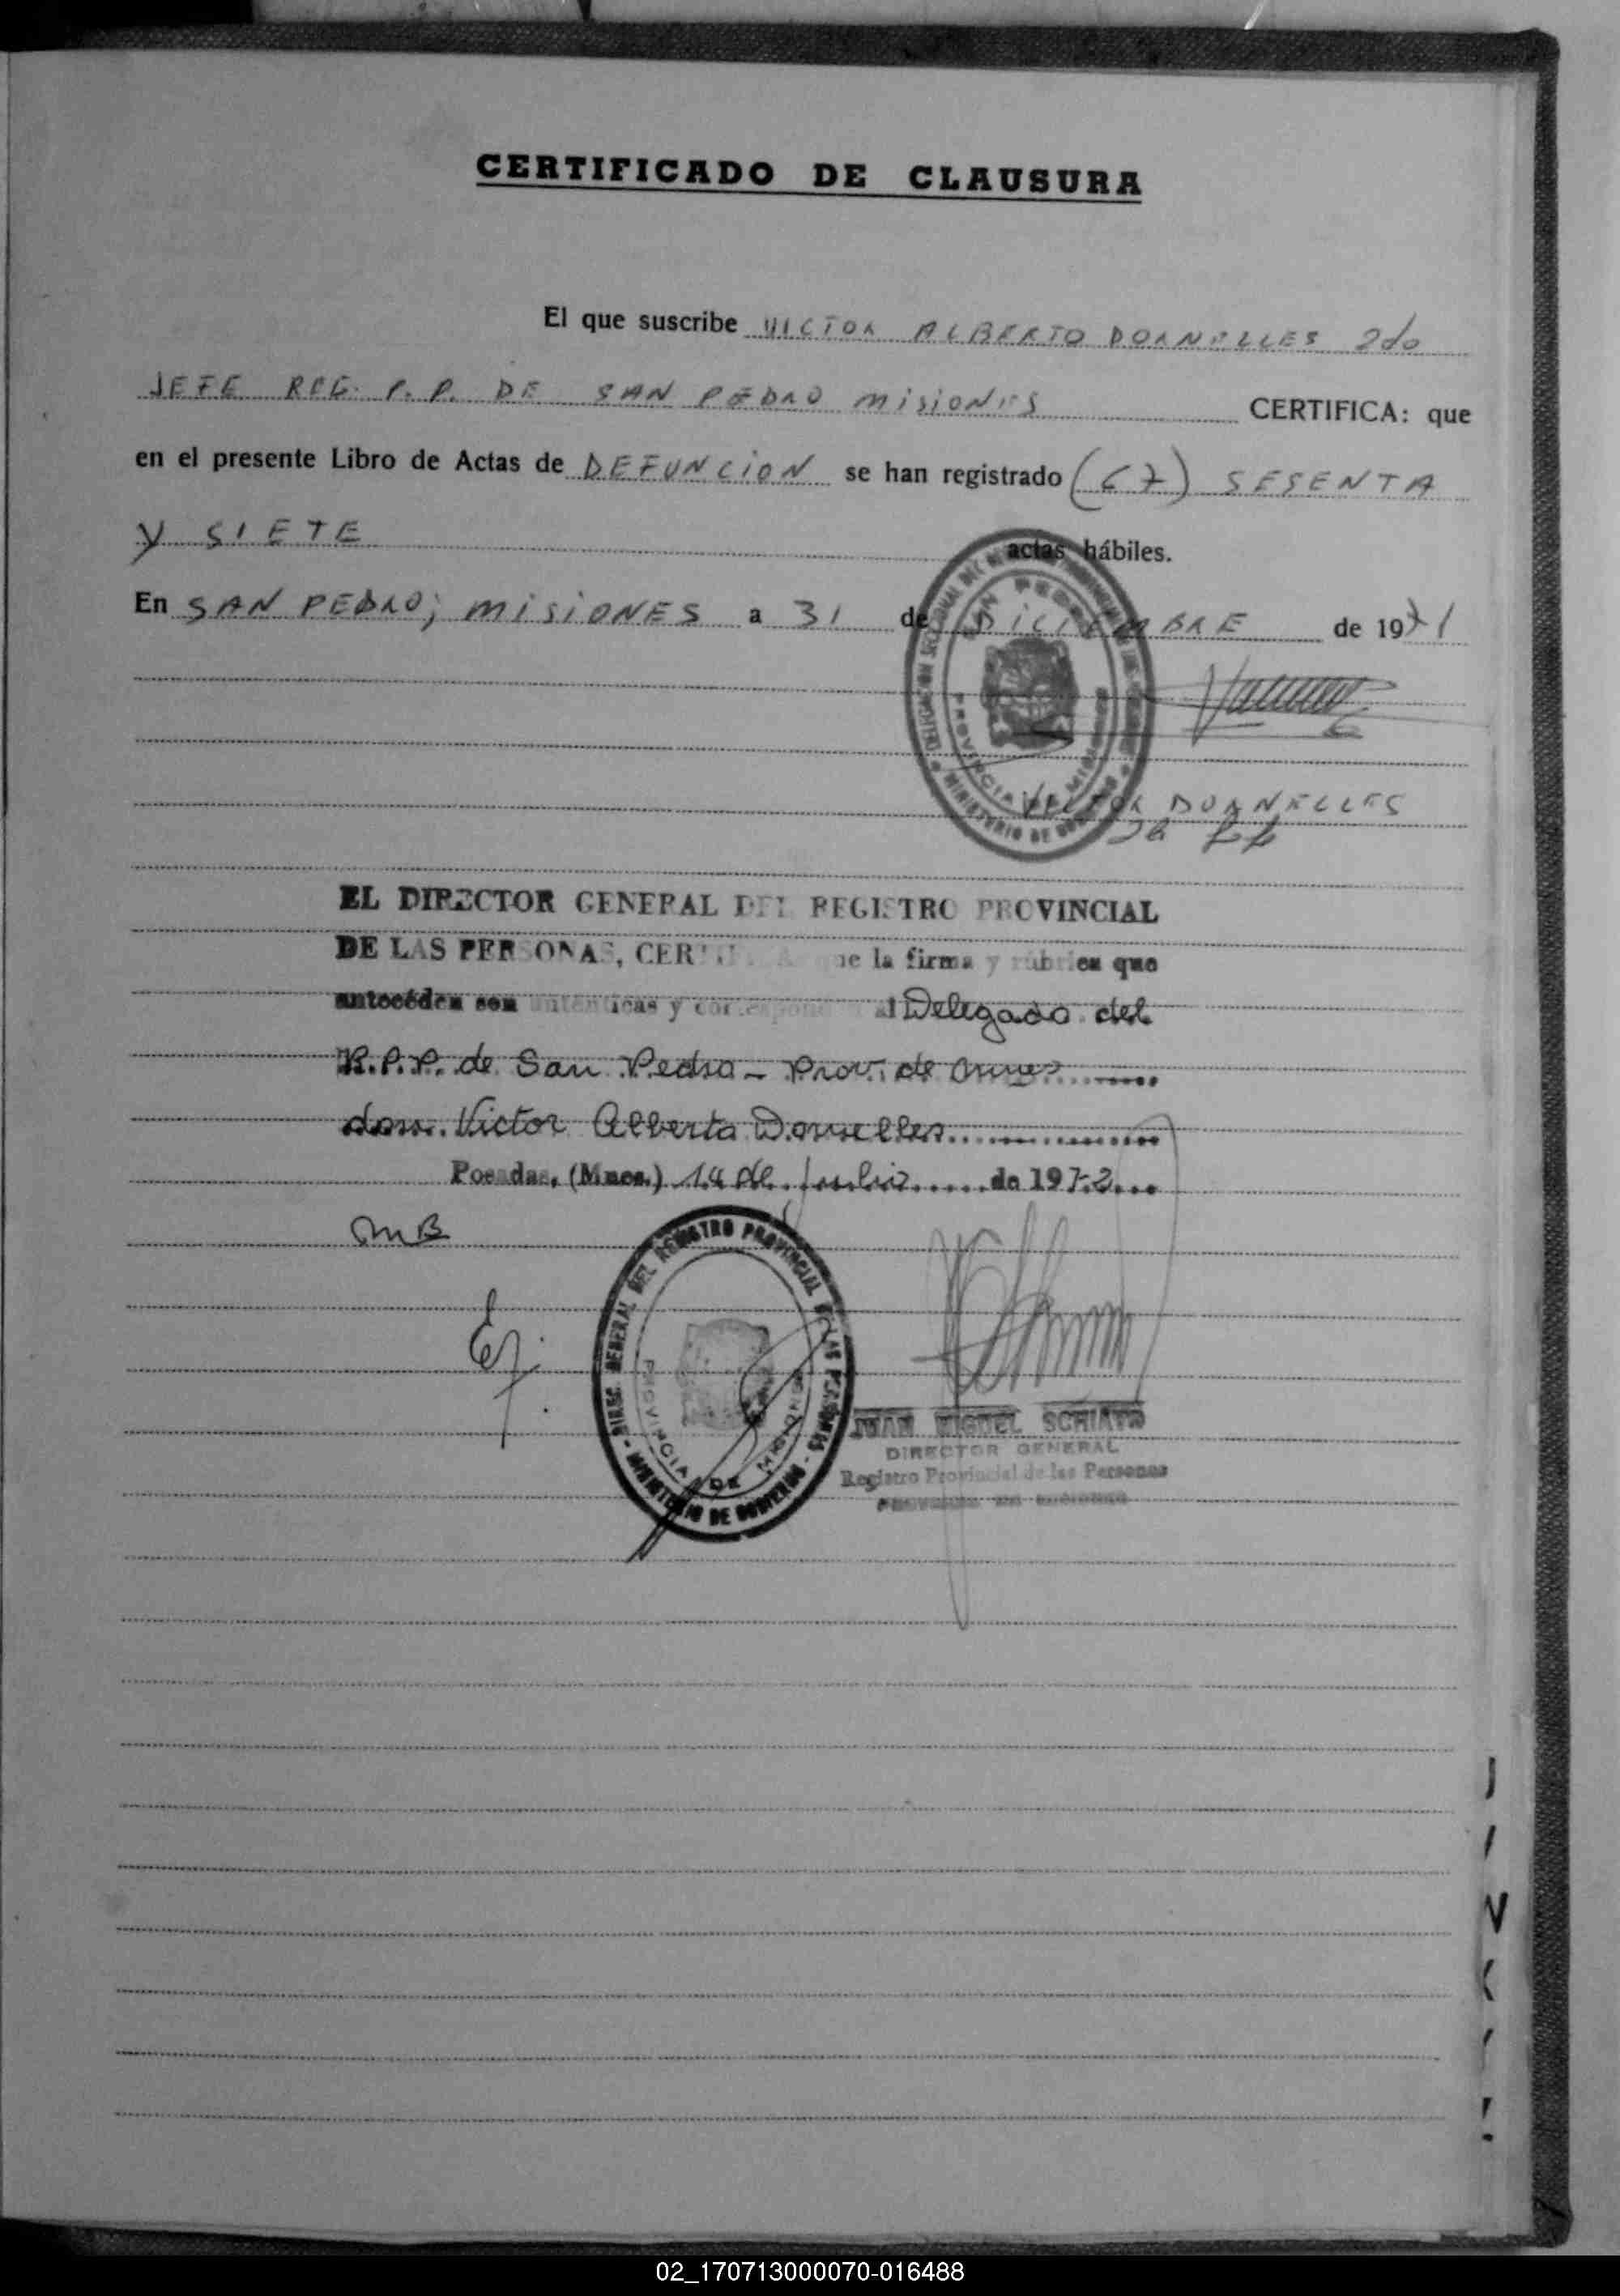 CERTIFICADO DE CLAUSURA
El que suscribe VICTOR ALBERTO DORNELLES 2do
JEFE REG. P. P. DE SAN PEDRO MISIONES CERTIFICA: que
en el presente Libro de Actas de DEFUNCION se han registrado (67) SESENTA
Y SIETE actas hábiles.
En SAN PEDRO; MISIONES a 31 de DICIEMBRE de 1971
VICTOR DORNELLES
EL DIRECTOR GENERAL DEL REGISTRO PROVINCIAL
DE LAS PERSONAS, CERTIFICA que la firma y rúbrica que
antecéden son auténticas y corresponden al Delegado del
R.P.P. de San Pedro - Prov. de Mnes
don Victor Alberto Dornelles
Posadas, (Mnes.) 14 de Julio de 1972
MB
DIREC. GENERAL DEL REGISTRO PROVINCIAL DE LAS PERSONAS - MINISTERIO DE GOBIERNO -
PROVINCIA DE MISIONES
JUAN MIGUEL SCHIAVO
DIRECTOR GENERAL
Registro Provincial de las Personas
PROVINCIA DE MISIONES
02_170713000070-016488